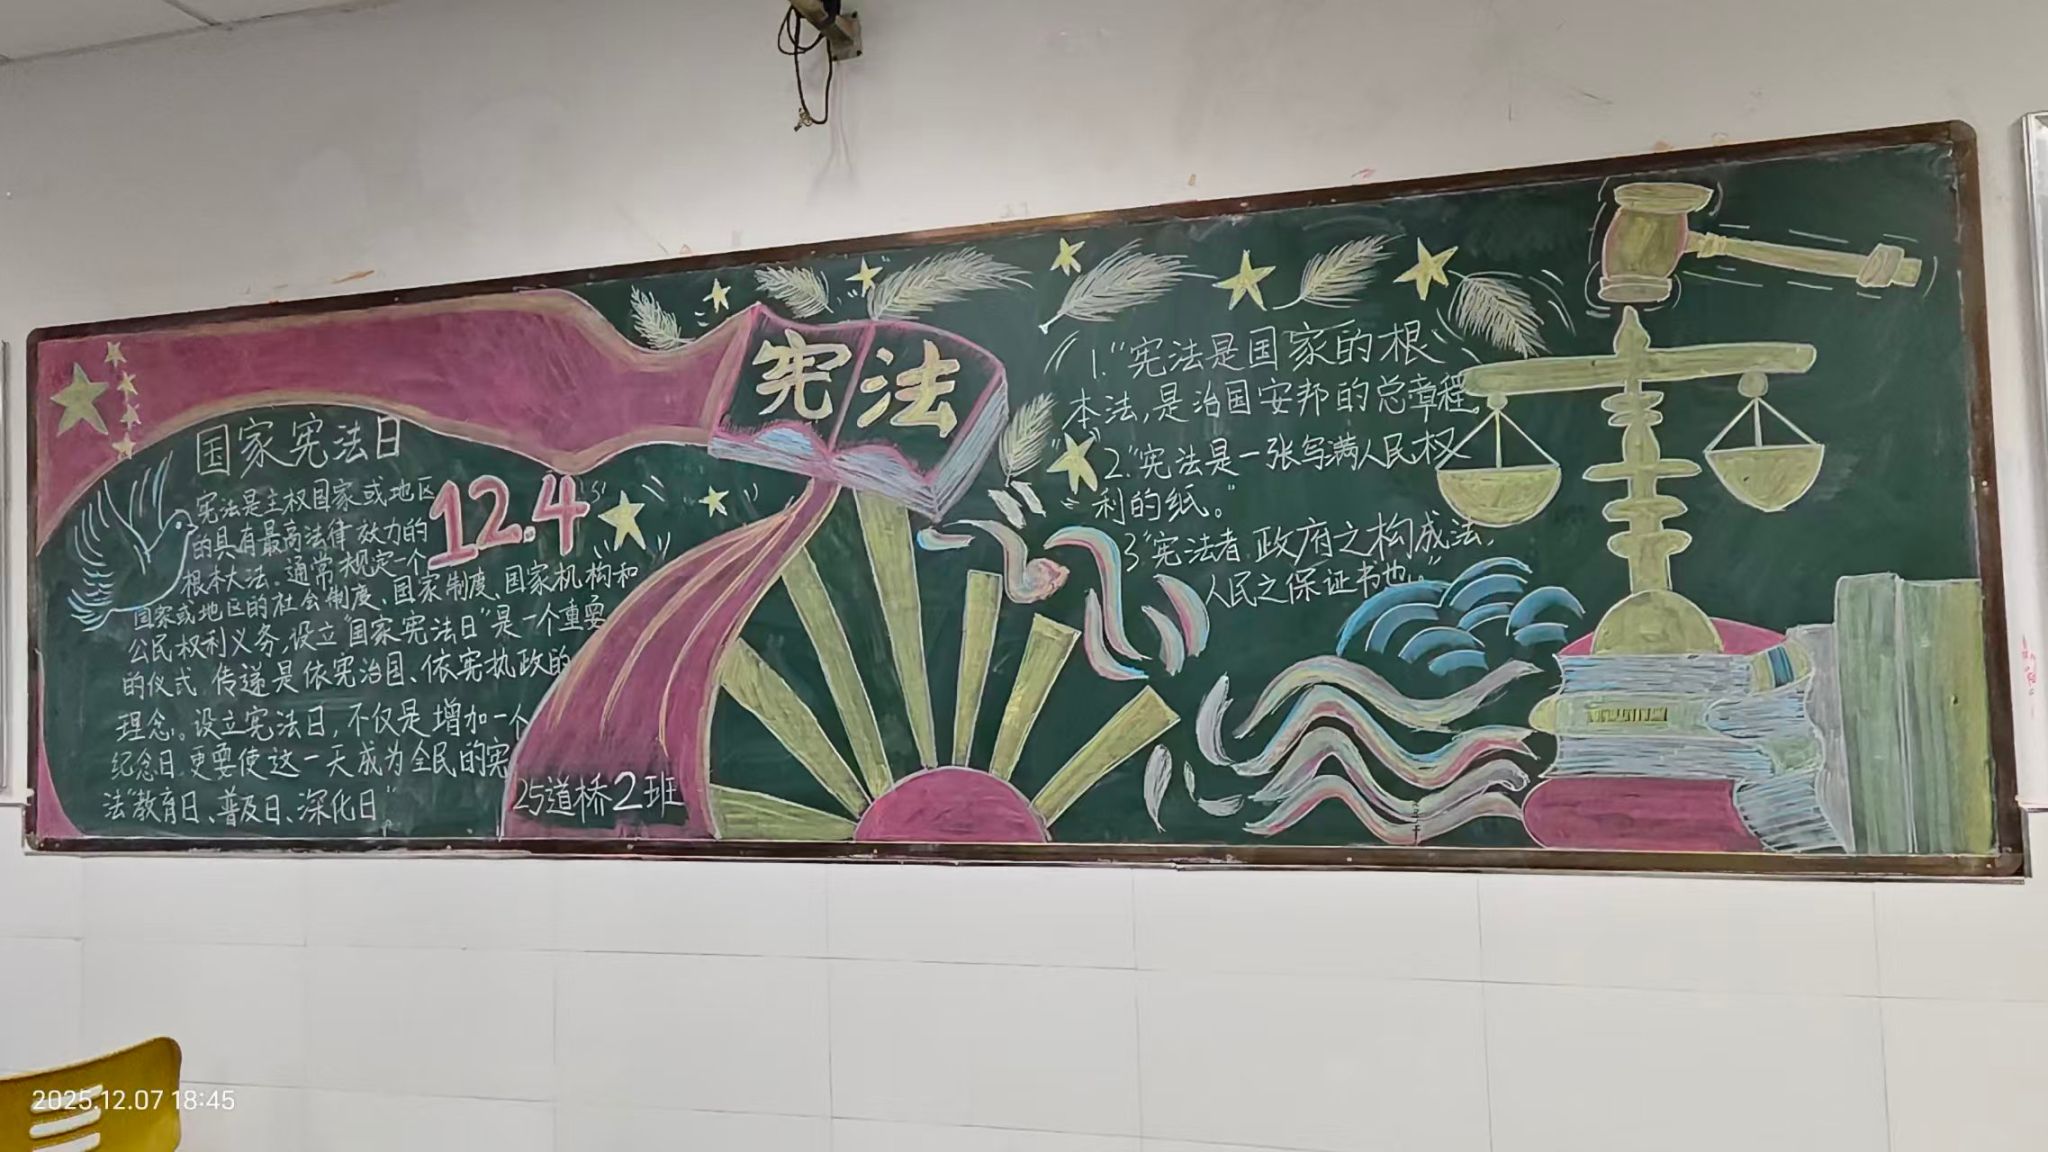 国家宪法日
12.4
宪法是主权国家或地区
的具有最高法律效力的
根本大法。通常规定一个
国家或地区的社会制度、国家制度、国家机构和
公民权利义务,设立"国家宪法日"是一个重要
的仪式 传递是依宪治国、依宪执政的
理念。设立宪法日,不仅是增加一个
纪念日,更要使这一天成为全民的宪
法"教育日、普及日、深化日"
25道桥2班
宪法
1."宪法是国家的根
本法,是治国安邦的总章程,
2."宪法是一张写满人民权
利的纸。"
3"宪法者,政府之构成法,
人民之保证书也。"
2025.12.07 18:45